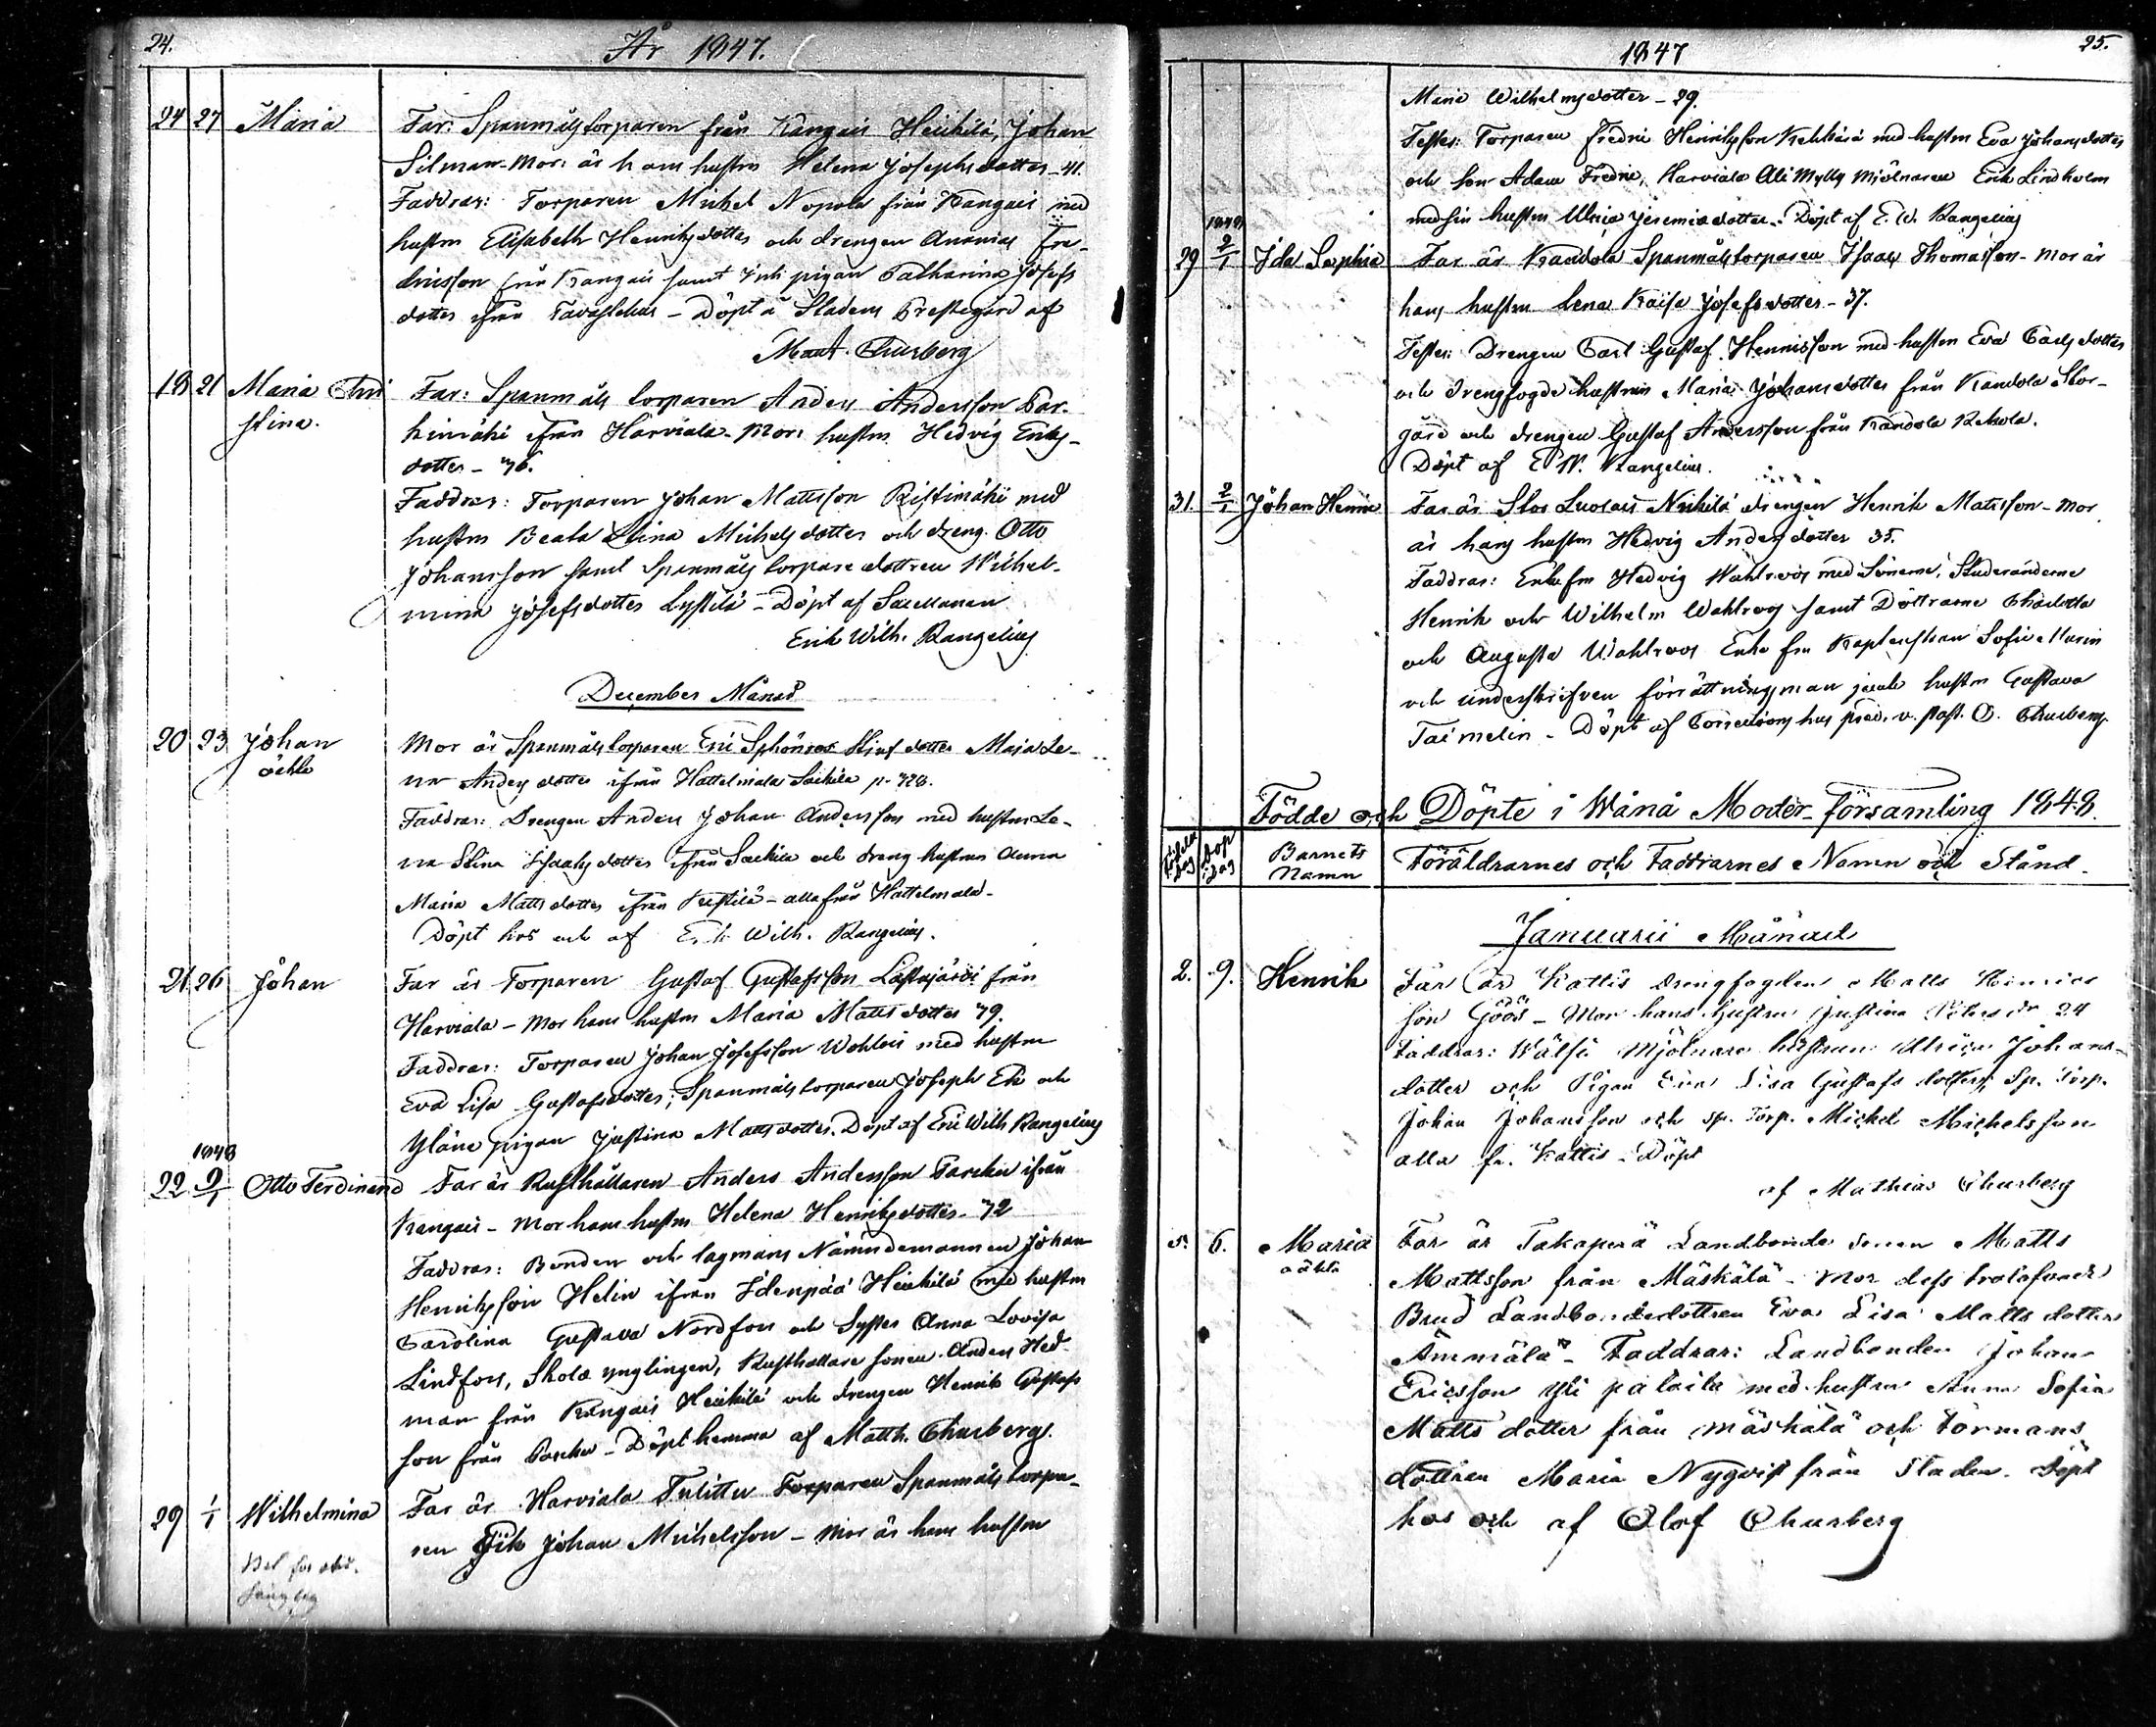 24.
År 1847.
24 27 Maria Far: Spanmålstorparen från Kangais Heikkilä, Johan
Silman - Mor: är hans hustru Helena Josephsdotter - 41.
Faddrar: Torparen Michel Nopola från Kangais med
hustru Elisabeth Henriksdotter och drengen Ananias Fre-
driksson från Kangais samt pigan Catharina Josefs
dotter ifrån Tavastehus - Döpt i Stadens Prestegård af
Matt. Churberg
18 21 Maria Chri Far: Spanmåls torparen Anders Andersson Par-
stina. kimäki ifrån Harviala - Mor: hustru Hedvig Eriks-
dotter - 76.
Faddrar: Torparen Johan Mattsson Ristimäki med
hustru Beata Stina Michelsdotter och dreng Otto
Johansson samt Spanmåls torpare dottren Wilhel-
mina Josefsdotter - Döpt af
Erik Wilh. Rangelius
December Månad
20 23 Johan Mor är Spanmålstorparen Eric dotter Maja Le-
oäkta na Andersdotter ifrån Hattelmala p. 728.
Faddrar: Drengen Anders Johan Andersson med hustru Le-
na Stina Isaaksdotter ifrån och dreng hustrun Anna
Maria Mattsdotter ifrån - alla från Hattelmala -
Döpt hos och af Erik Wilh. Rangelius.
21 26 Johan Far är Torparen Gustaf Gustafsson från
Harviala - Mor hans hustru Maria Mattsdotter 79.
Faddrar: Torparen Johan Josefsson med hustru
Eva Lisa Gustafsdotter; Spanmåls torparen Joseph och
pigan Justina Mattsdotter. Döpt af Eric Wilh Rangelius
1848
22 9/1 Otto Ferdinand Far är Rusthållaren Anders Andersson ifrån
Kangais - Mor hans hustru Helena Henriksdotter - 72
Faddrar: Bonden och lagmans Nämndemannen Johan
Henriksson Helin ifrån Idenpää Heikkilä med hustru
Carolina Gustava Nordfors och Syster Anna Lovisa
Lindfors, Skole ynglingen, Rusthållare sonen Anders Hed-
man från Kangais Heikkilä och drengen Henrik Gustafs
son från - Döpt hemma af Matth. Churberg.
29 1/1 Wilhelmina Far är Harviala Tulittu Torparen Spanmåls torpa-
ren Johan Michelsson - Mor är hans hustru
1847
25.
Maria Wilhelmsdotter - 29.
Testes: Torparen Fredric Henriksson med hustru Eva Johansdotter
och son Adam Fredric, Harviala Ali Mylly Mjölnaren Erik Lindholm
med sin hustru Ulrica Jeremiædotter - Döpt af E. W. Rangelius
1848
29 2/1 Ida Sophia Far är Kandola Spanmålstorparen Isaac Thomasson - Mor är
hans hustru Lena Kaisa Josefsdotter - 37.
Testes: Drengen Carl Gustaf Hennisson med hustru Eva Carlsdotter
och drengfogde hustrun Maria Johansdotter från Kandola Stor-
gård och drengen Gustaf Andersson från Kandola Rekola.
Döpt af E W. Rangelius.
31. 2/1 Johan Henric Far är Stor Luolais Nikkilä drengen Henrik Mattsson - Mor
är hans hustru Hedvig Andersdotter 35.
Faddrar: Enkefru Hedvig Wahlroos med Sönerne, Studerandene
Henrik och Wilhelm Wahlroos samt Döttrarne Charlotta
och Augusta Wahlroos Enke fru Sofie
och underskrifven förrättningsman jemte hustru Gustava
Taimelin - Döpt af Corrections hus pred. v. past. O. Churberg.
Födde och Döpte i Wånå Moder-församling 1848.
Födelse dag Dop dag Barnets Namn Föräldrarnes och Faddrarnes Namn och Stånd.
Januarii Månad
2. 9. Henrik Far är Kattis drengfogden Matts Henrics
son Göös - Mor hans hustru Justina Petersdr 24
Faddrar: Wälsi Mjölnare hustrun Ulrica Johans-
dotter och Pigan Eva Lisa Gustafsdotter, Sp. Torp.
Johan Johansson och Sp. Torp. Mickel Michelsson
alla fr. Kattis - Döpt
af Mathias Churberg
5. 6. Maria Far är Takaperä Landbonde sonen Matts
oäkta Mattsson från Mäskälä - Mor dess trolofvade
Brud Landbondedottren Eva Lisa Mattsdotter
Ämmälä - Faddrar: Landbonden Johan
Ericsson Yli med hustru Anna Sofia
Mattsdotter från Mäskälä och Formans
dottren Maria Nyqvist från Staden. Döpt
hos och af Olof Churberg